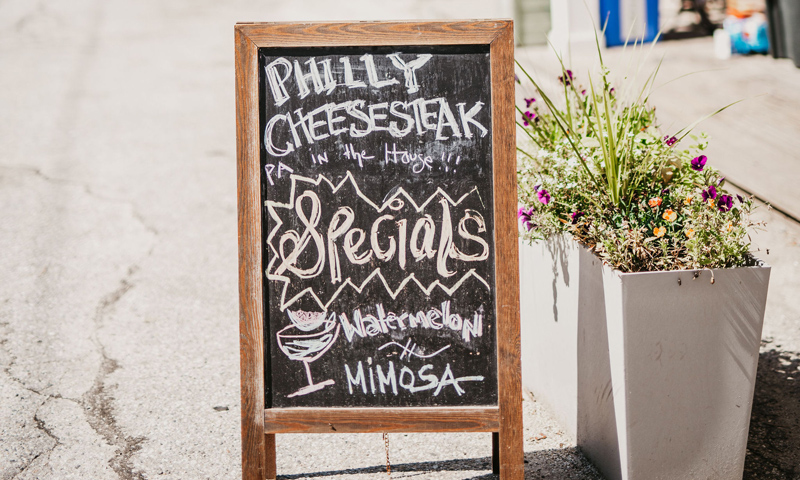 PHILLY
CHEESESTEAK
PA in the House!!!
Specials
Watermelon
MiMOSA